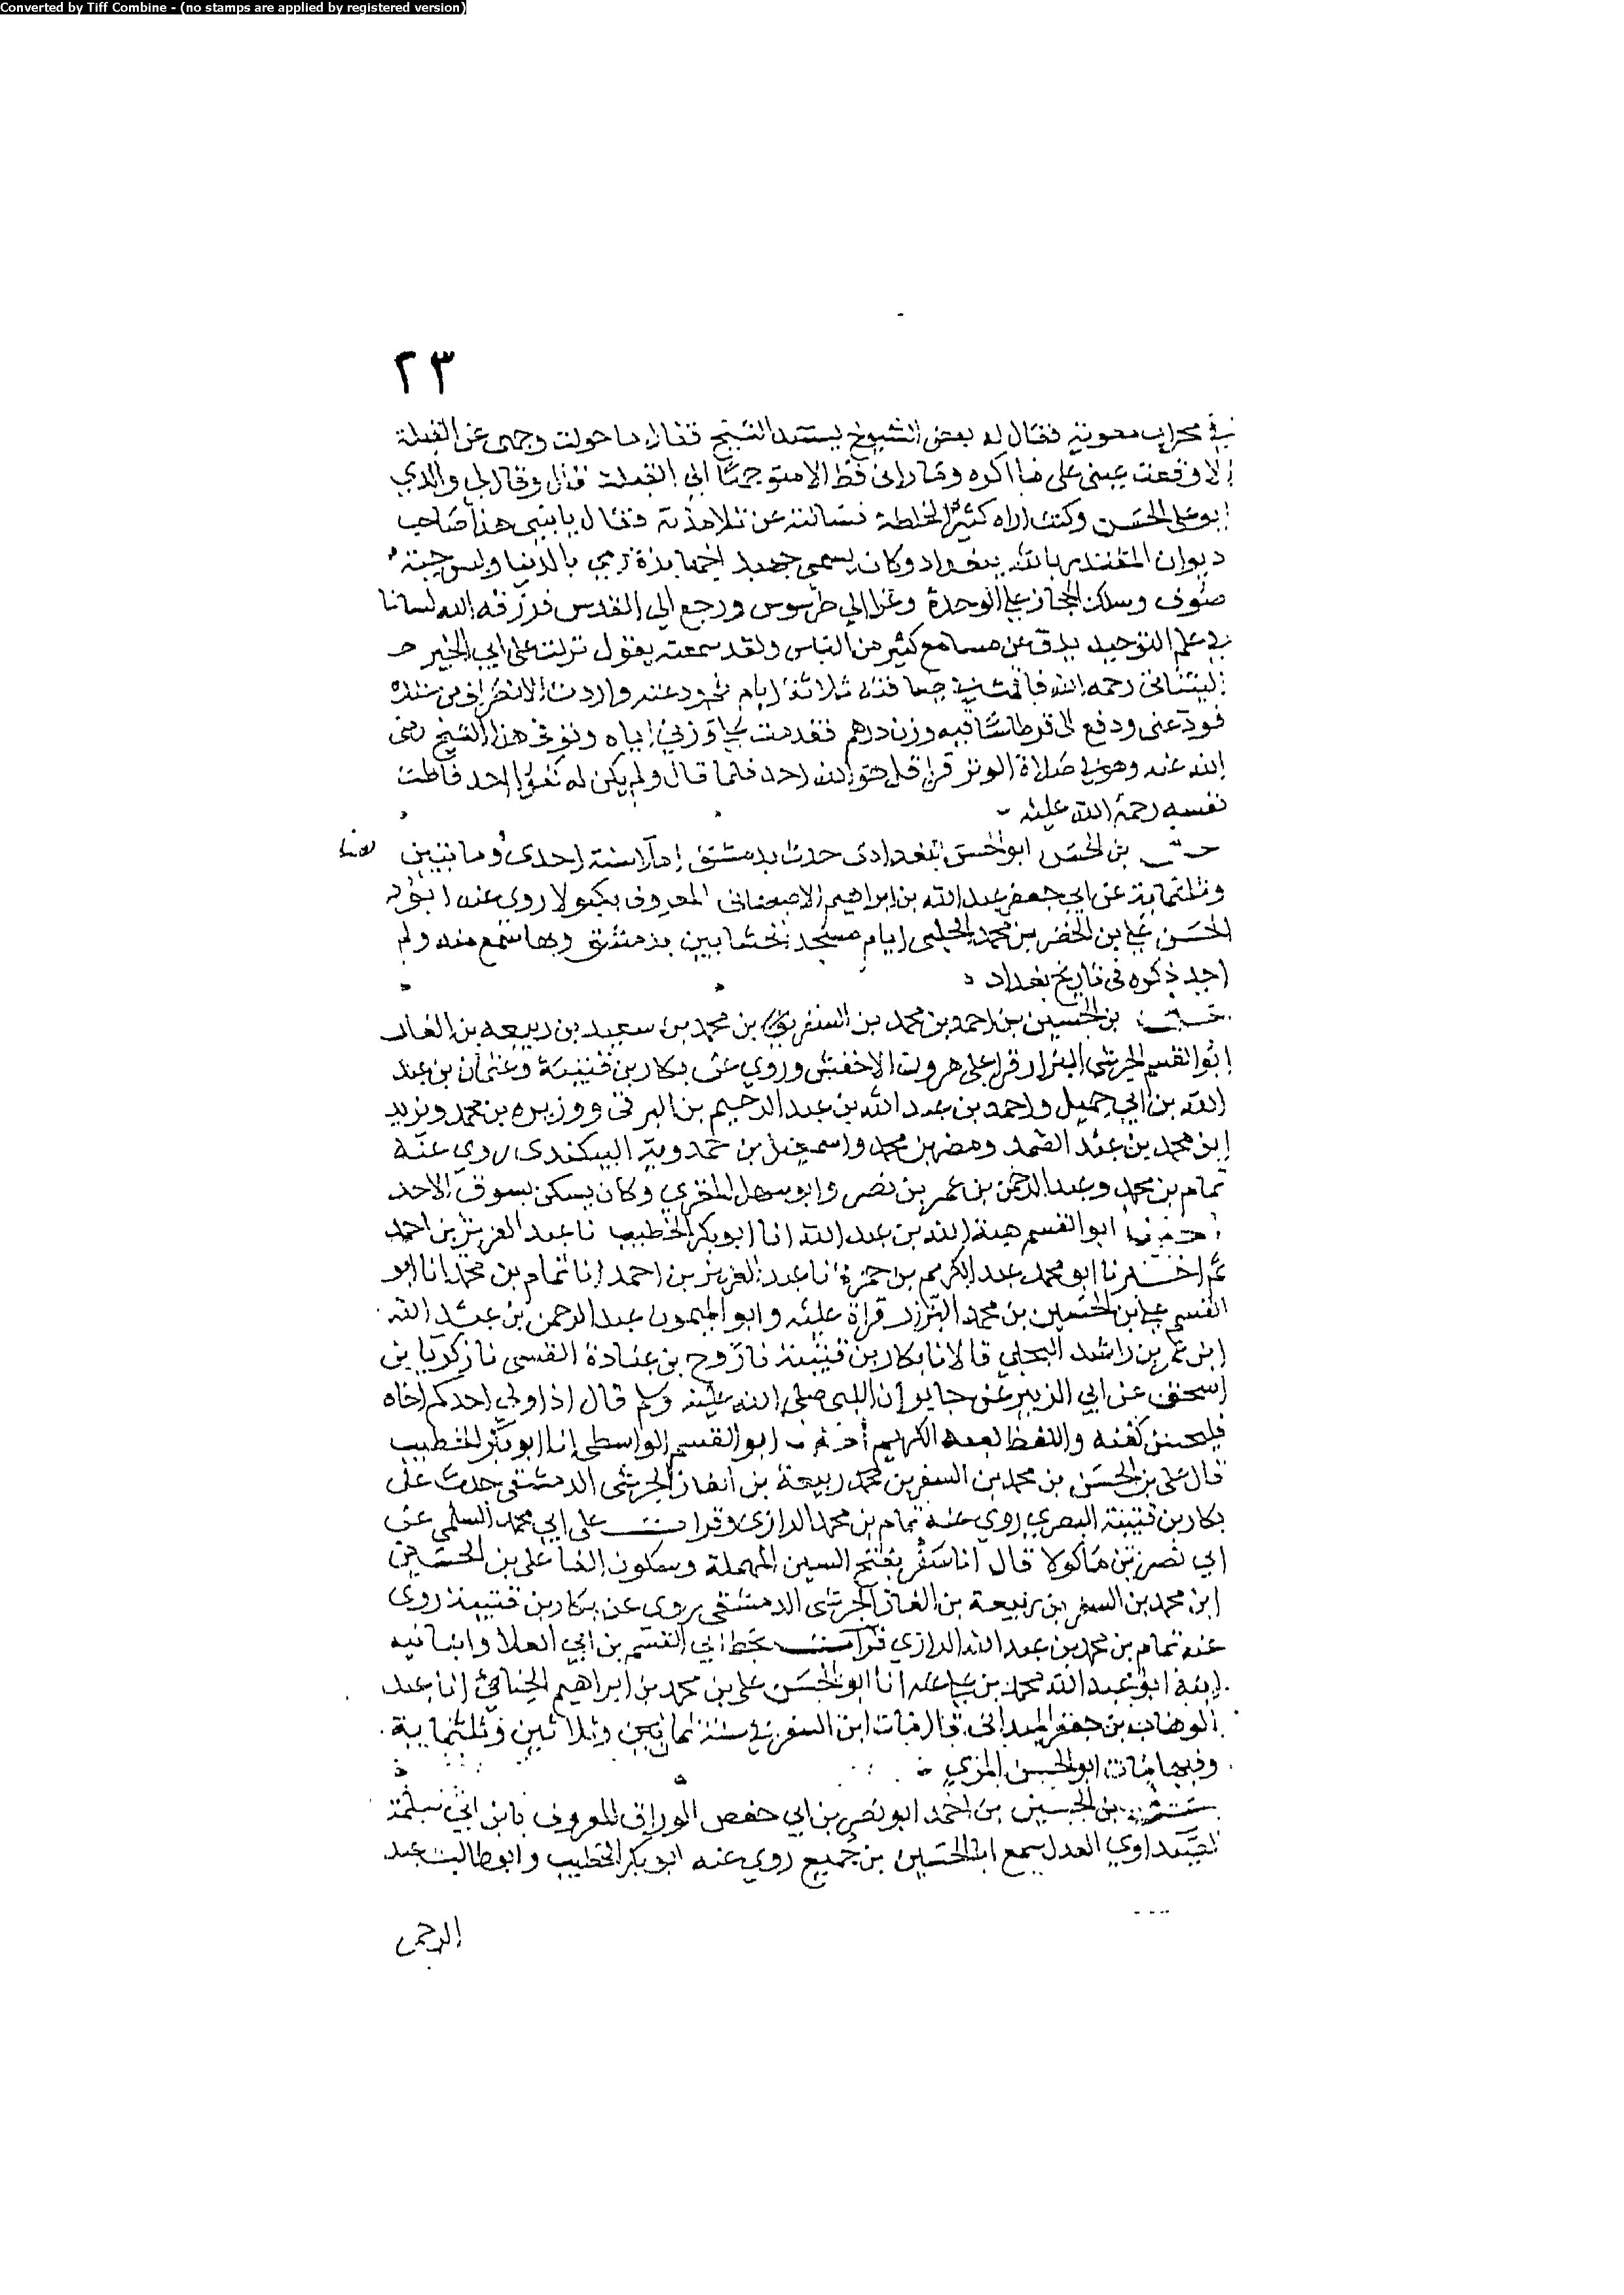 Converted by Tiff Combine - (no stamps are applied by registered version)
٢٣
في محراب معوية فقال له بعض الشيوخ يستند الشيخ فقال ما حولت وجهي عن القبلة
الا وقعت عيني على ما اكره وما راني قط الا متوجها الى القبلة قال وقال لي والدي
ابو علي الحسن وكنت اراه كثير الخلطة فسالته عن تلامذته فقال يا بني هذا صاحب
ديوان المقتدر بالله ببغداد وكان يسمى جهبذ الجهابذة رمي بالدنيا ولبس جبة
صوف وسلك الحجاز على الوحدة وغزا الى طرسوس ورجع الى القدس فرزقه الله لسانا
في علم التوحيد يدق عن مسامع كثير من الناس ولقد سمعته يقول نزلت على ابي الخير
التيناتي رحمه الله فاقمت في ضيافته ثلاثة ايام عنده واردت الانصراف من عنده
فودعني ودفع الى قرطاسا فيه وزن درهم وتوفي هذا الشيخ رضي
الله عنه وهو في صلاة الوتر قرا قل هو الله احد فلما قال ولم يكن له كفوا احد فاظت
نفسه رحمة الله عليه
بن الحسن ابو الحسن البغدادي حدث بدمشق املا سنة احدى وثمانين
وثلثماية عن ابي جعفر عبد الله بن ابراهيم الاصبهاني المعروف روى عنه ابو
الحسن علي بن الخضر بن محمد الحلبي امام مسجد الخشابين بدمشق وبها سمع منه ولم
اجد ذكره في تاريخ بغداد
علي بن الحسين بن احمد بن محمد بن السفر بن محمد بن سعيد بن ربيعه بن الغاز
ابو القسم الجرشي البزاز قرا على هرون الاخفش وروي عن بكار بن قتيبة وعثمان بن عبد
الله بن ابي جميل واحمد بن عبد الله بن عبد الرحيم بن البرقي ووزيره بن محمد ويزيد
ابن محمد بن عبد الصمد ومضر بن محمد واسمعيل بن حمدويه البيكندي روي عنه
تمام بن محمد وعبد الرحمن بن عمر بن نصر وابو سهل المقري وكان يسكن بسوق الاحد
اخبرنا ابو القسم هبة الله بن عبد الله انا ابو بكر الخطيب نا عبد العزيز بن احمد
ثم اخبرنا ابو محمد عبد الكريم بن حمزة نا عبد العزيز بن احمد انا تمام بن محمد انا ابو
القسم علي بن الحسين بن محمد البزاز قراة عليه وابو الميمون عبد الرحمن بن عبد الله
ابن عمر بن راشد البجلي قالا نا بكار بن قتيبة نا روح بن عبادة القسي نا زكريا بن
اسحق عن ابي الزبير عن جابر ان النبي صلى الله عليه وسلم قال اذا ولي احدكم اخاه
فليحسن كفنه واللفظ لعبد الكريم اخبرنا ابو القسم الواسطي انا ابو بكر الخطيب
قال علي بن الحسن بن محمد بن السفر بن محمد ربيعة بن الغاز الجرشي الدمشقي حدث عن
بكار بن قتيبة البصري روي عنه تمام بن محمد الرازي وقرات على ابي محمد السلمي عن
ابي نصر بن ماكولا قال اما سفر بفتح السين المهملة وسكون الفا علي بن الحسين
ابن محمد بن السفر بن ربيعة بن الغاز الجرشي الدمشقي يروي عن بكار بن قتيبة روى
عنه تمام بن محمد بن عبد الله الرازي قرات بخط ابي القسم بن ابي العلا وانبانيه
ابنه ابو عبد الله محمد بن علي عنه انا ابو الحسن علي بن محمد بن ابراهيم الحنائي انا عبد
الوهاب بن جعفر الميداني قال مات ابن السفر في سنة ثمان وثلاثين وثلثماية
وفيها مات ابو الحسن المزي
علي بن الحسين بن احمد ابو نصر بن ابي حفص الوراق المعروف بابن ابي سلمة
الصيداوي العدل سمع ابا الحسين بن جميع روي عنه ابو بكر الخطيب وابو طالب عبد
الرحمن